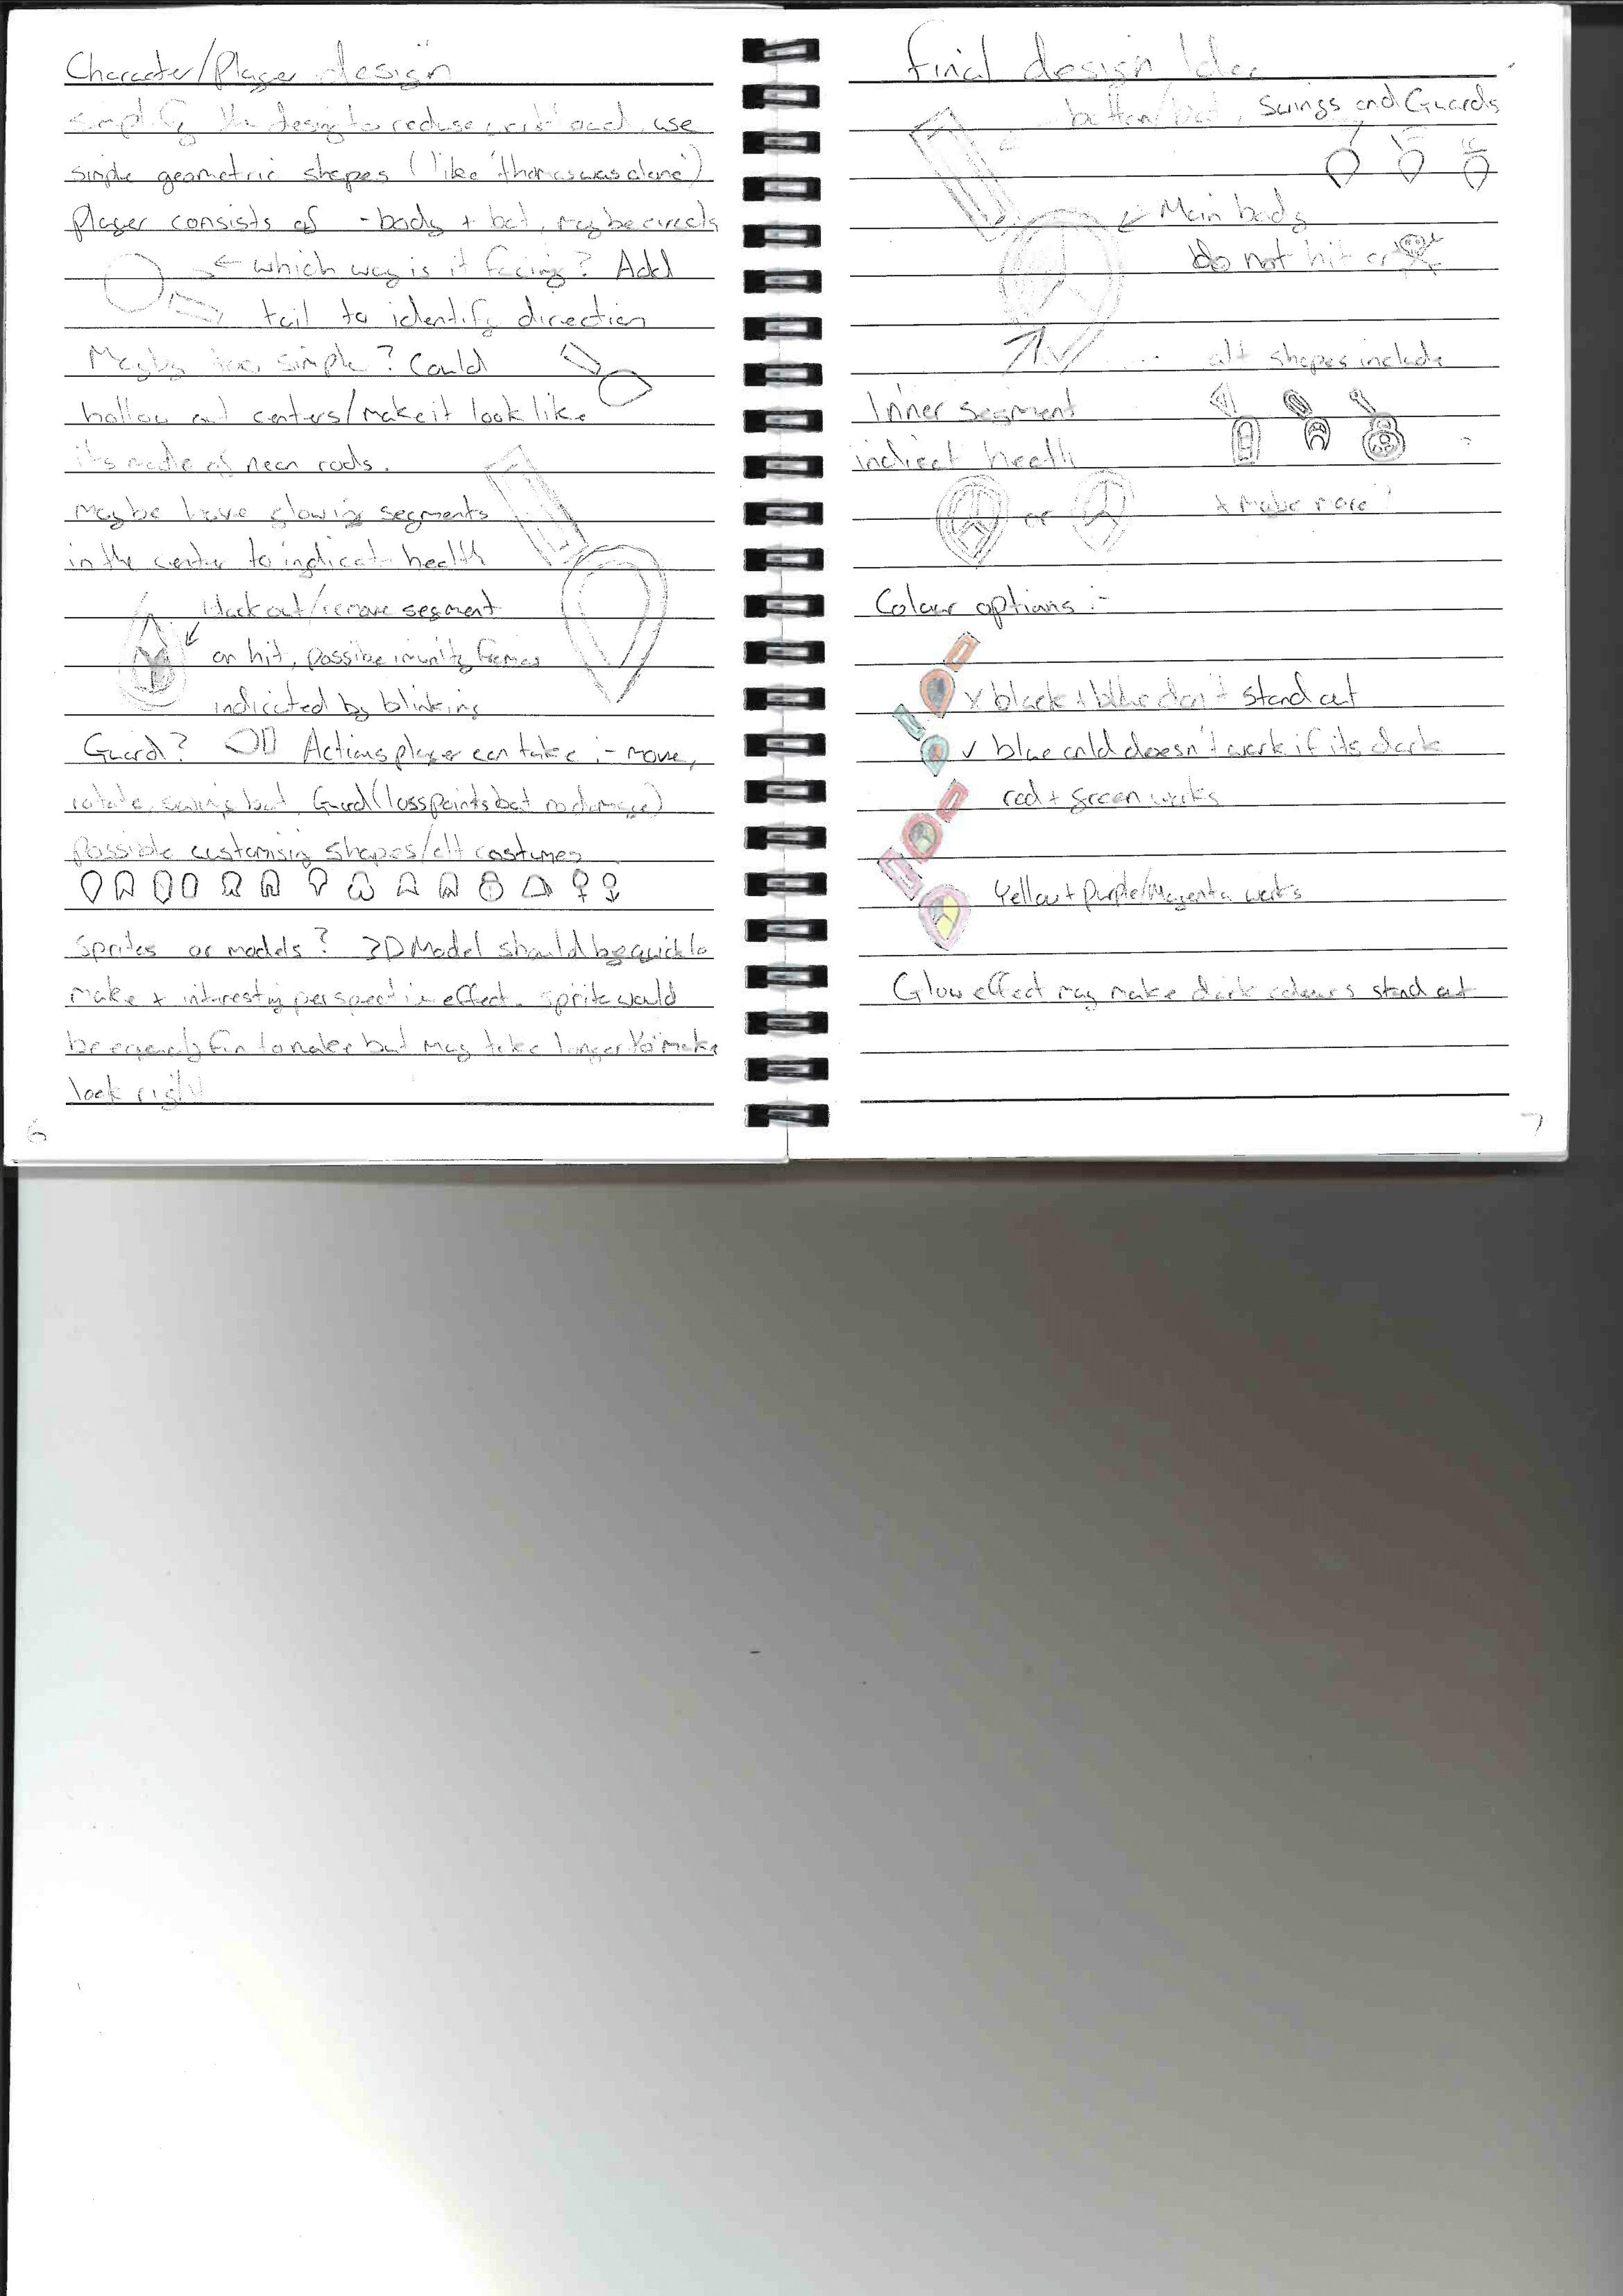 Character/Player design
simplify the design to reduce workload, use
simple geometric shapes (like 'thomas was alone')
Player consists of - body + bat, maybe circle
← which way is it facing? Add
tail to identify direction
Maybe too simple? Could
hollow out centers/make it look like
its made of neon rods.
maybe have glowing segments
in the center to indicate health
black out/remove segment
on hit, possible imunity frames
indicated by blinking
Guard? Actions player can take :- move,
rotate, swing bat, Guard (loss points but no damage)
Possible customising shapes/alt costumes
Sprites or models? 3D Model should be quick to
make + interesting perspective effect. sprite would
be equally fun to make but may take longer to make
look right
6
Final design Idea
batton/bat, Swings and Guards
← Main body
do not hit or
alt shapes include
Inner segment
indicect health
or
+ Maybe more?
Colour options :-
x black + blue don't stand out
✓ blue and doesn't work if its dark
red + green works
Yellow + Purple/Magenta works
Glow effect may make dark colours stand out
7